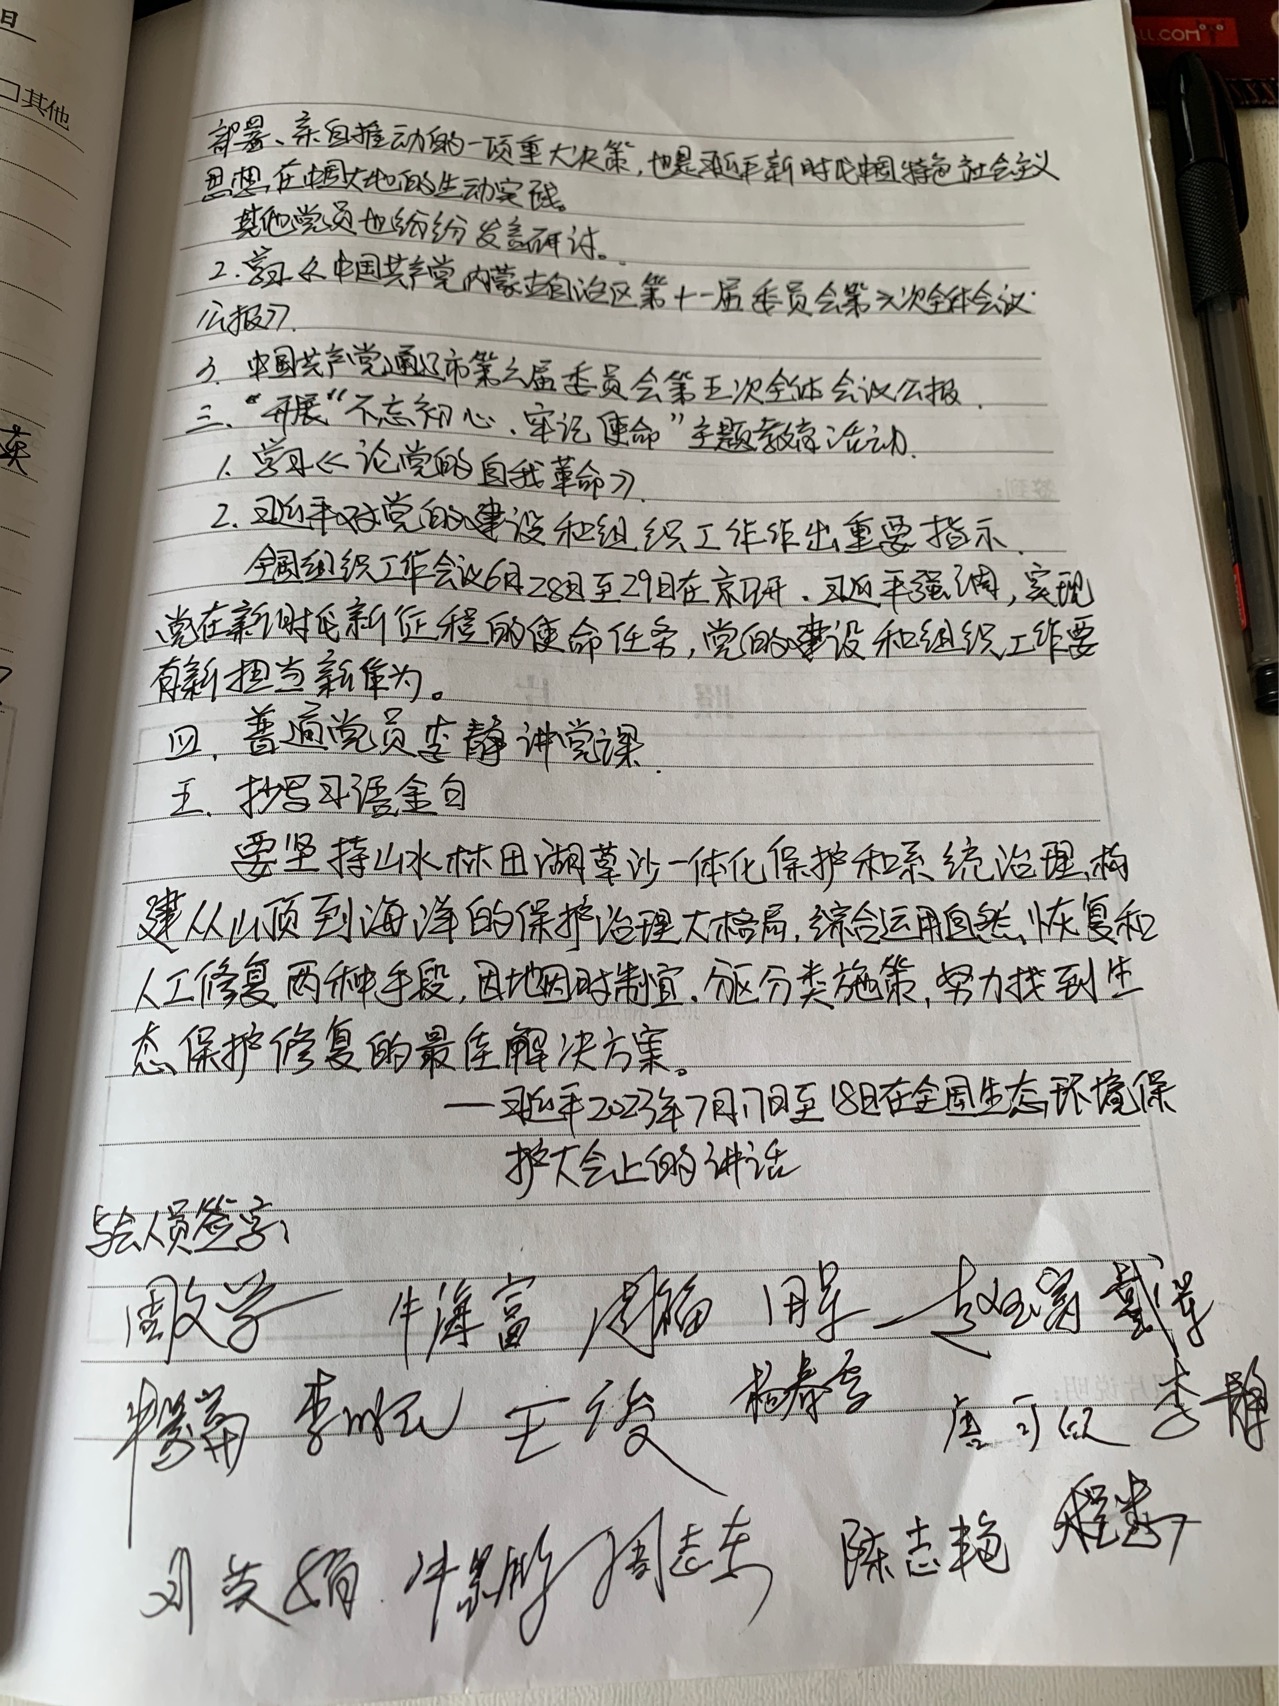 日
□其他
英
LL.COM
部署、亲自推动的一项重大决策,也是习近平新时代中国特色社会主义
思想在中国大地的生动实践。
其他党员也纷纷发言研讨。
2.学习《中国共产党内蒙古自治区第十一届委员会第六次全体会议
公报》.
3.中国共产党通辽市第六届委员会第五次全体会议公报.
三."开展"不忘初心、牢记使命"主题教育活动.
1.学习《论党的自我革命》.
2.习近平对党的建设和组织工作作出重要指示.
全国组织工作会议6月28日至29日在京召开.习近平强调,实现
党在新时代新征程的使命任务,党的建设和组织工作要
有新担当新作为。
四.普通党员李静讲党课.
五.抄写习语金句
要坚持山水林田湖草沙一体化保护和系统治理,构
建从山顶到海洋的保护治理大格局,综合运用自然恢复和
人工修复两种手段,因地因时制宜.分区分类施策,努力找到生
态保护修复的最佳解决方案。
——习近平2023年7月17日至18日在全国生态环境保
护大会上的讲话
与会人员签字:
周文学 牛海富
王俊 杨春雪 李静
刘英娟 周志东 陈志艳